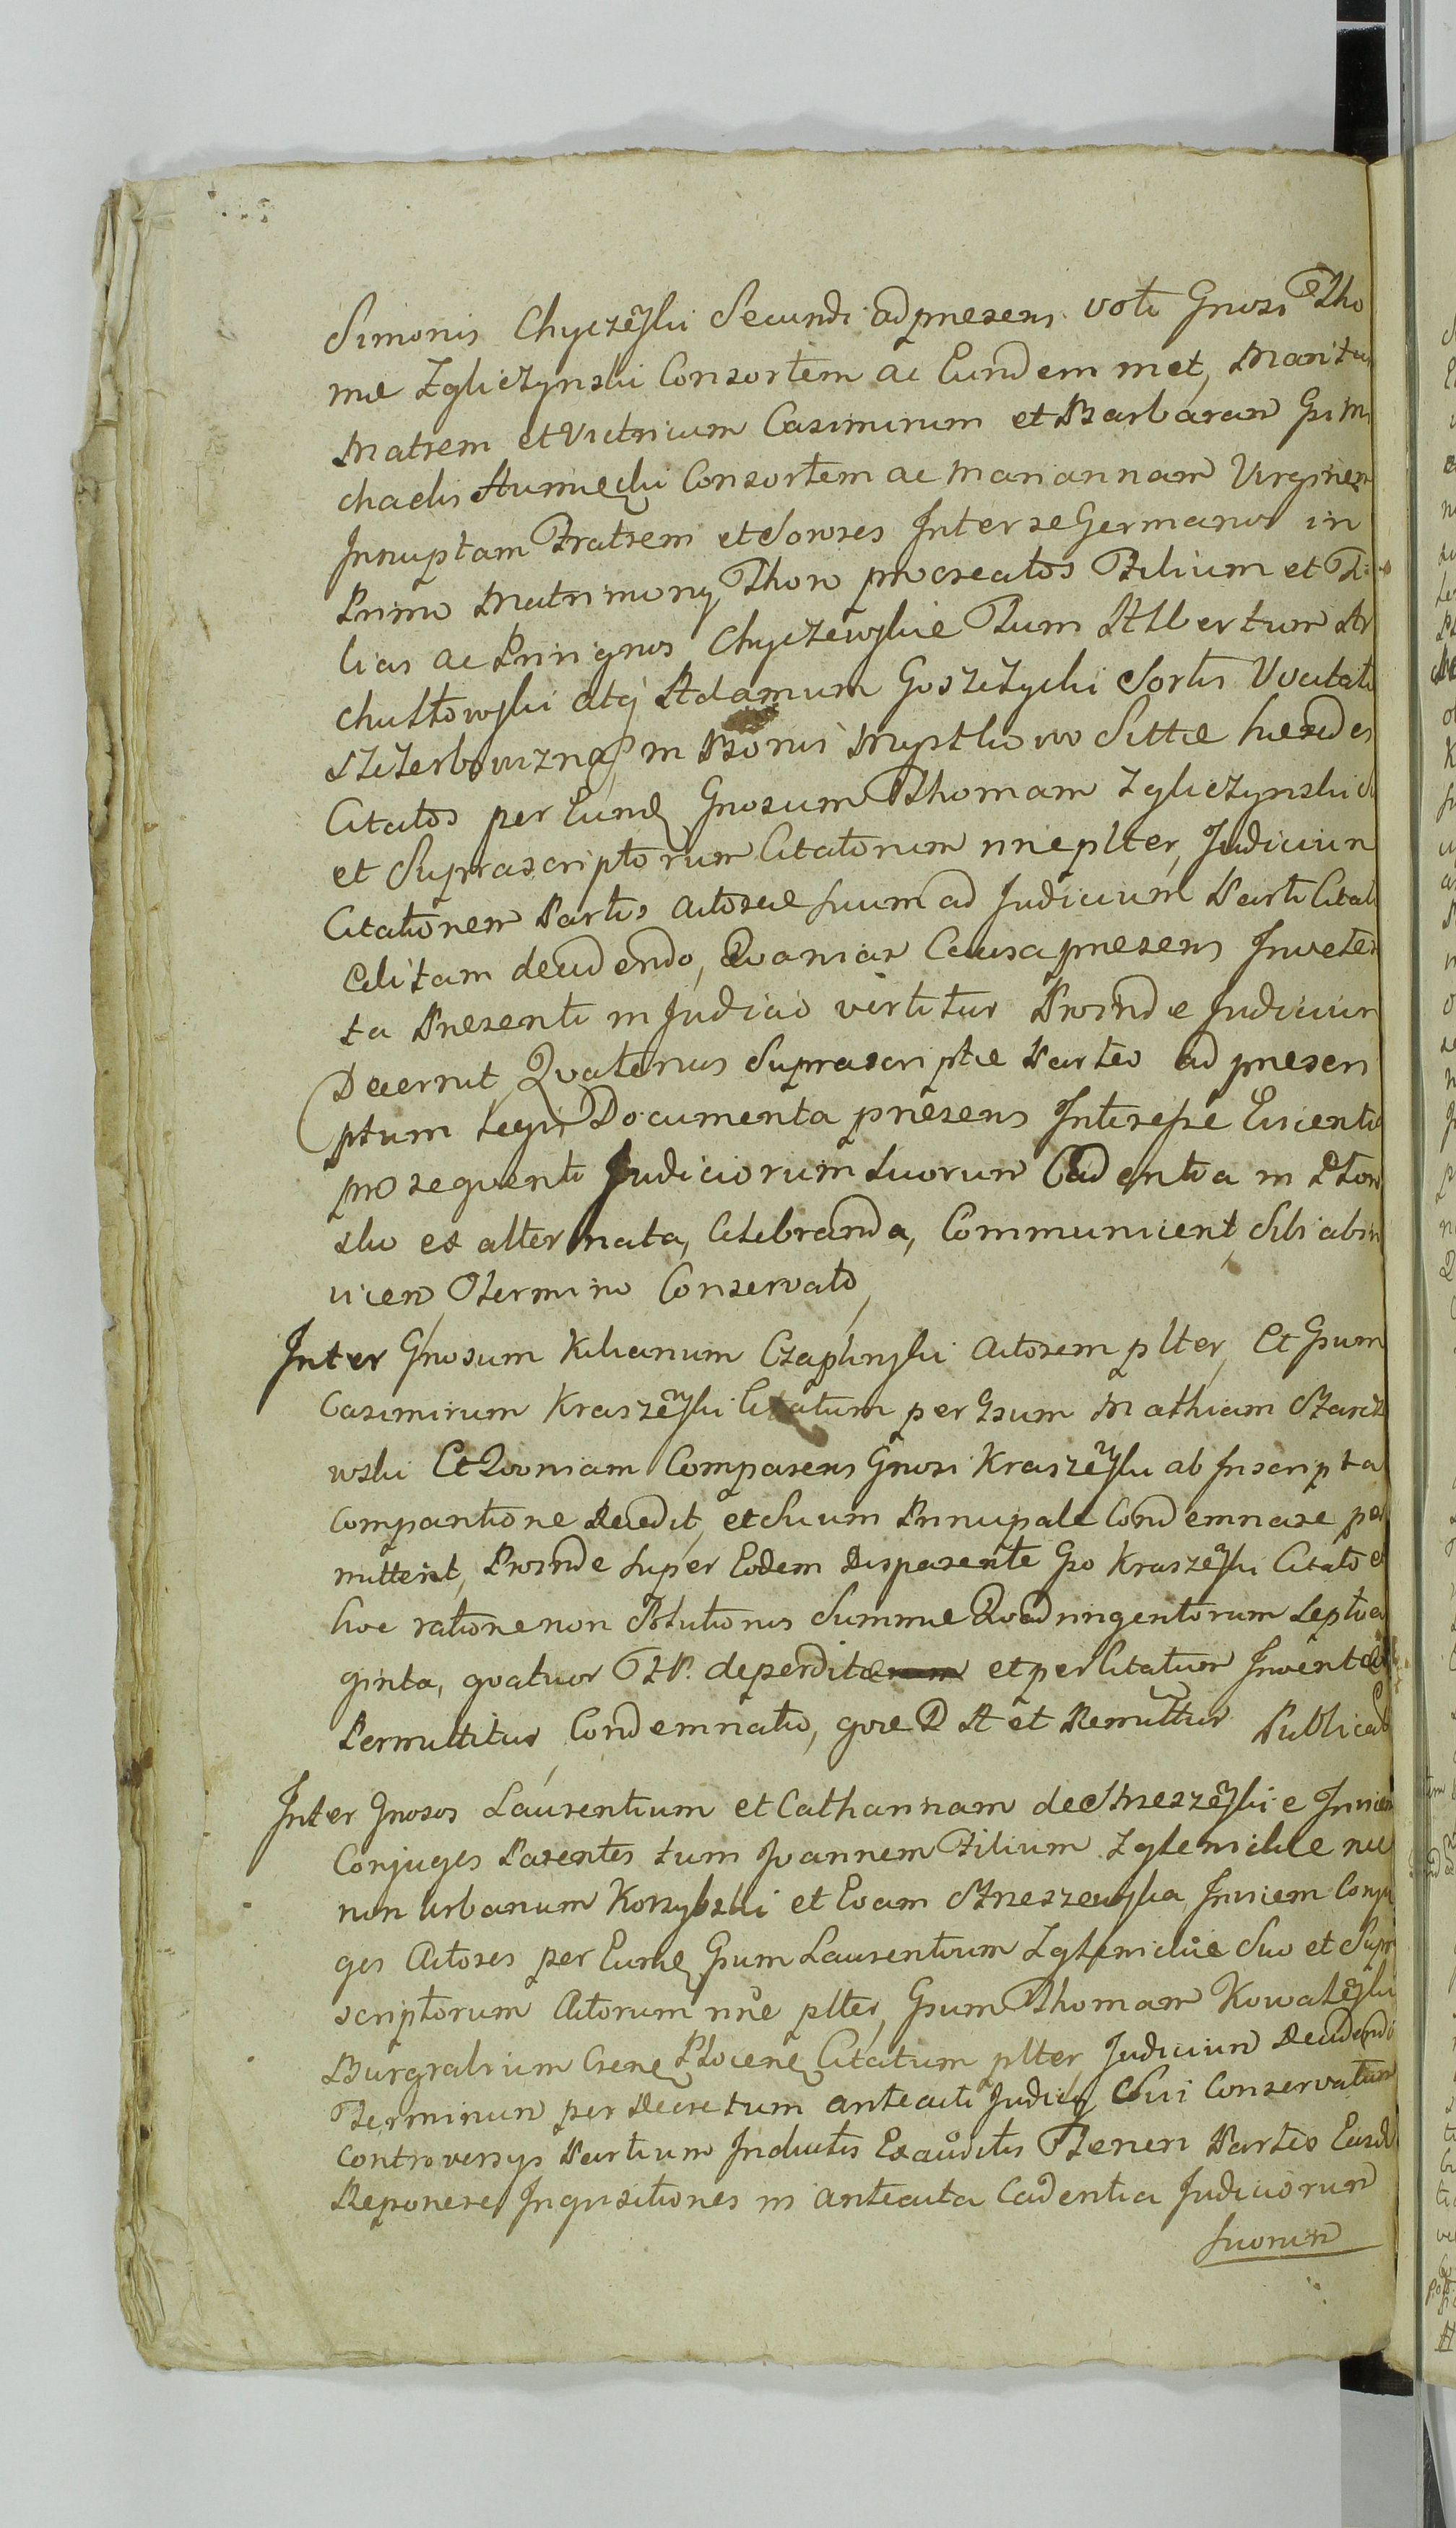 Simonis Chyczewski Secundi ad presens voti Gnosi Tho
me Zgliczynski Consortem ac Eundem met, Maritum
Matrem et Vitricum Casimirum et Barbaram Gsi Mi
chaelis Humięcki Consortem ac Mariannam Virginem
Innuptam Fratrem et Sorores Inter se Germanos in
Primo Matrimony Thoro procreatos Filium et Fi
lias ac Privignos Chyczewskie Tum Albertum Ar
chutowski atq Adamum Goszczycki Sortis Vocitate
Szczerbowizna in Bonis Mystkowo Sitte heredes
Citatos per Eund Gnosum Thomam Zgliczynski
et Suprascriptorum Citatorum nne plter, Judicium
Citationem Partis Actoree suum ad Judicium Parti Citate
Editam decidendo, Quoniam Causa presens Invete
ta Presenti in Judicio vertitur Proinde Judicium
Decernit Quatenus Suprascripte Partes ad prescri
ptum Legis Documenta presens Interesse Eicientia
pro sequenti Judiciorum Suorum Cadentia in Plon
sko ex alternata, Celebranda, Communicent, Sibi abin
vicem Termino Conservato
Inter Gnosum Kilianum Czaplinski Actorem plter, Et Gsum
Casimirum Kraszewski Citatum per Gsum Mathiam Starcz
wski Et Quoniam Comparens Gnosi Kraszewski ab Inscripta
Comparitione Recedit, et Suum Principale Condemnare per
mitterit, Proinde super Eodem Disparente Gso Kraszewski Citato et
hoc ratione non Solutionis Summe Quadringentorum Septua
ginta, quatuor FP. deperdite et per Citatum Invente
Permittitur Condemnatio, que D A et Remittitur Publicat
Inter Gnosos Laurentium et Catharinam de Streszewskie Invicem
Conjuges Parentes tum Joannem Filium Zglenickie nec
non Urbanum Korzybski et Evam Streszewska Invicem Conju
ges Actores per Eund Gsum Laurentium Zglenickie Suo et Supra
scriptorum Actorum nne plter, Gsum Thomam Kowalewski
Burgrabium Csenę Plocenę Citatum plter Judicium Decidendo
Terminum per Decretum anteacti Judicy Sui Conservatum
Controversys Partium Inductis Exauditis Teneri Partes Easd
Reponere Inquisitiones in anteacta Cadentia Judiciorum
Suorum